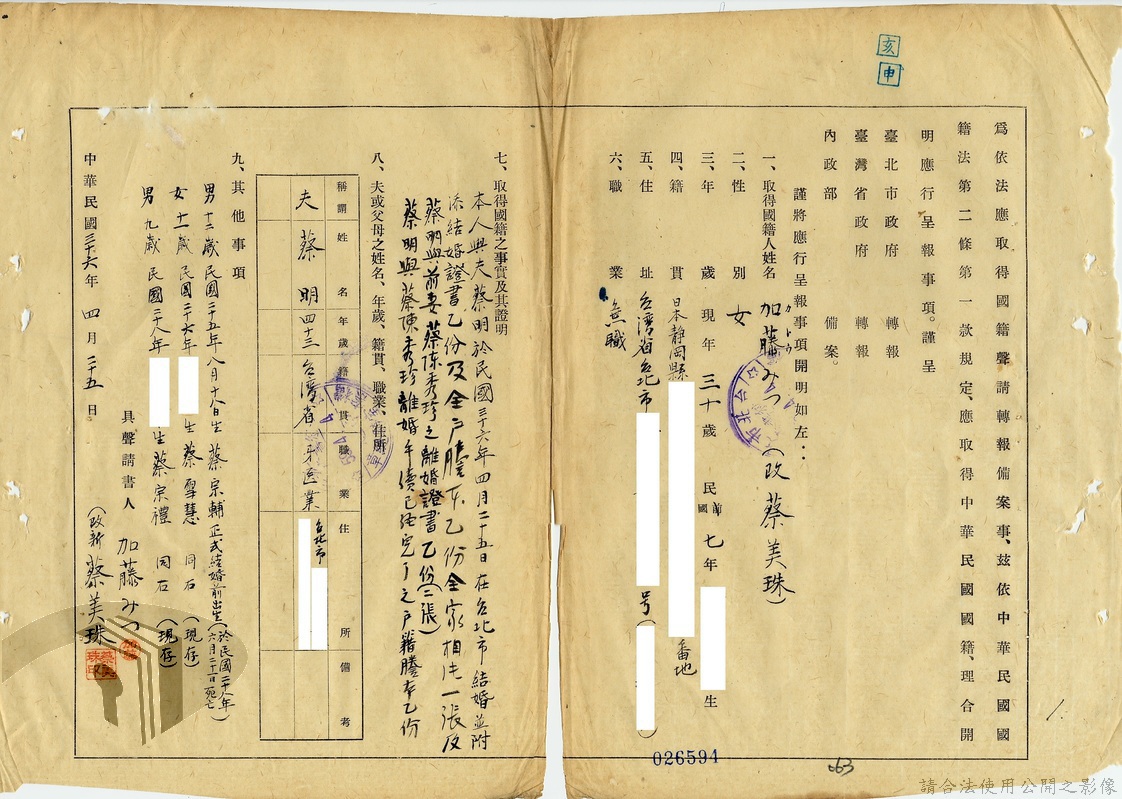 亥
申
為依法應取得國籍聲請轉報備案事、茲依中華民國國
籍法第二條第一款規定、應取得中華民國國籍、理合開
明應行呈報事項。謹呈
臺北市政府 轉報
臺灣省政府 轉報
內政部 備案。
謹將應行呈報事項開明如左：
一、取得國籍人姓名 加藤みつ(改蔡美珠)
カトウ
二、性別 女
三、年歲 現年三十歲 民國前七年 生
四、籍貫 日本靜岡縣 番地
五、住址 台灣省台北市 号( )
六、職業 無職
七、取得國籍之事實及其證明
本人與夫蔡明於民國三十六年四月二十五日在台北市結婚並附
添結婚證書乙份及全戶謄本乙份全家相片一張及
蔡明與前妻蔡陳秀珍之離婚證書乙份(二張)
蔡明與蔡陳秀珍離婚手續已經完了之戶籍謄本乙份
八、夫或父母之姓名、年歲、籍貫、職業、住所
稱謂 姓名 年歲 籍貫 職業 住所 備考
夫 蔡明 四十三 台灣省 牙医業 台北市
九、其他事項
男十二歲民國二十五年八月十八日生蔡宗輔正式結婚前出生(於民國二十八年六月二十二日死亡)
女十一歲民國二十六年 生蔡雪慧 同右 (現存)
男九歲民國二十八年 生蔡宗禮 同右 (現存)
具聲請書人 加藤みつ
(改新蔡美珠)
蔡美珠印
中華民國三十六年四月二十五日。
026594
063
1.
請合法使用公開之影像